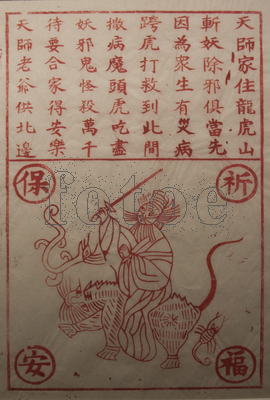 天師家住龍虎山
斬妖除邪俱當先
因為衆生有災病
跨虎打救到此間
撒病魔頭虎吃盡
妖邪鬼怪殺萬千
待要合家得安樂
天師老爺供北邊
祈
保
福
安
fotoe